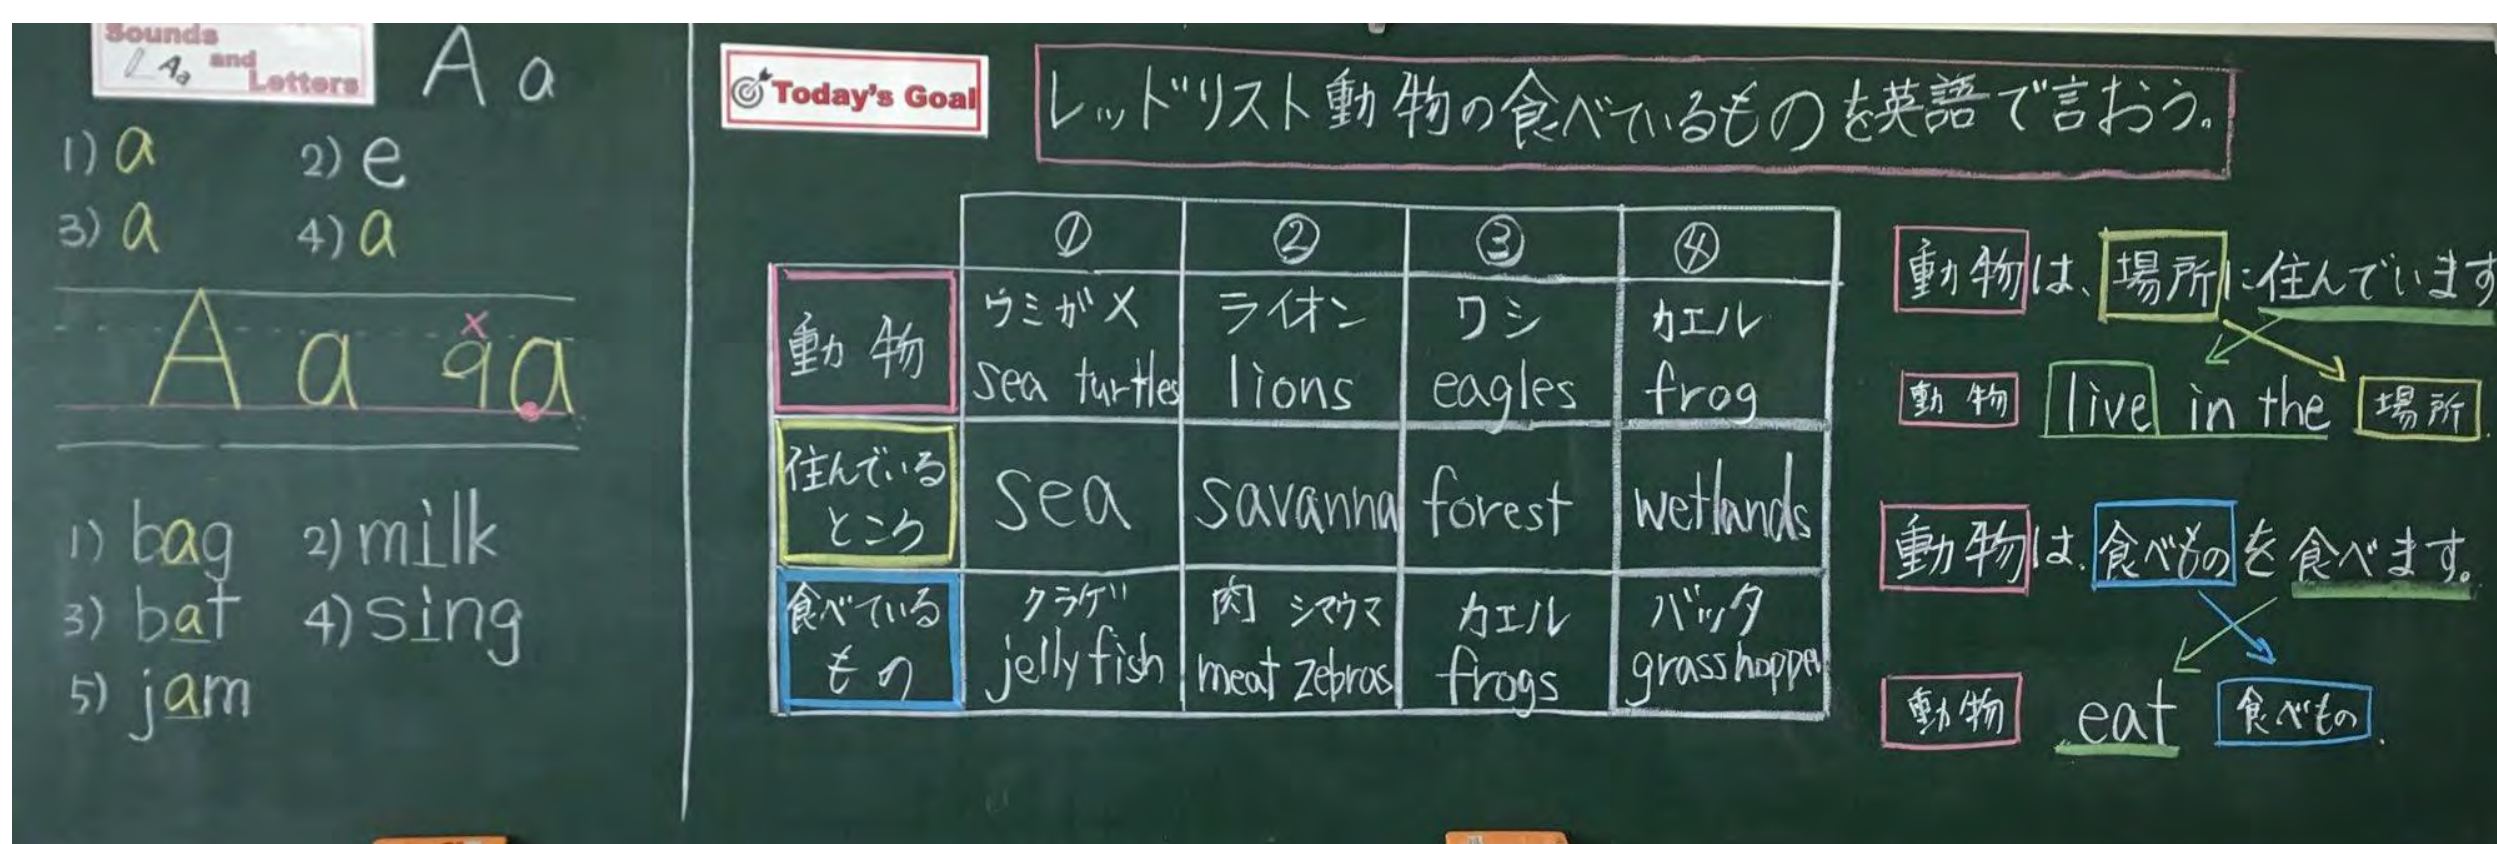 Sounds
Aa and
Letters
A a
1) a 2) e
3) a 4) a
A a a a
1) bag 2) milk
3) bat 4) sing
5) jam
Today's Goal
レッドリスト動物の食べているものを英語で言おう。
① ② ③ ④
動物
ウミガメ ライオン ワシ カエル
sea turtles lions eagles frog
住んでいる
ところ
sea savanna forest wetlands
食べている
もの
クラゲ 肉 シマウマ カエル バッタ
jelly fish meat zebras frogs grasshopper
動物は、場所に住んでいます
動物 live in the 場所.
動物は、食べものを食べます。
動物 eat 食べもの.